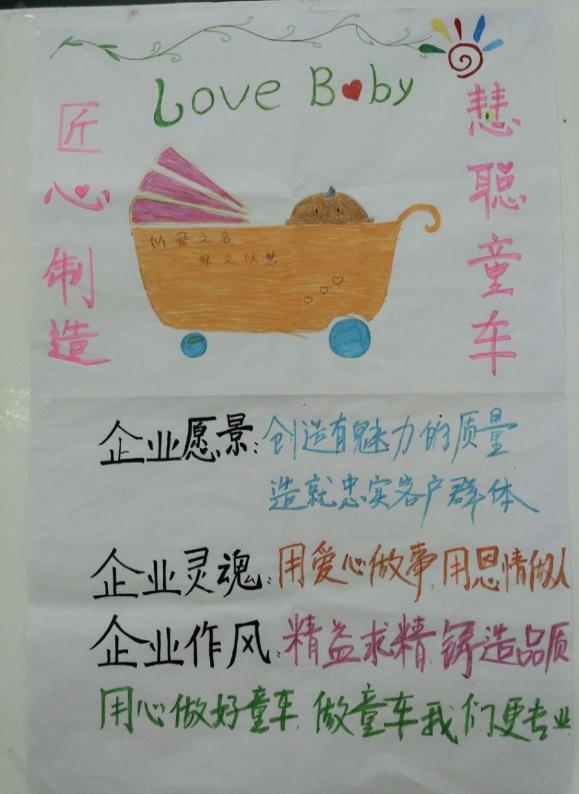 Love Baby
匠心制造
慧聪童车
以爱之名
冠之以慧
企业愿景：创造有魅力的质量
造就忠实客户群体
企业灵魂：用爱心做事，用恩情做人
企业作风：精益求精，铸造品质
用心做好童车，做童车我们更专业